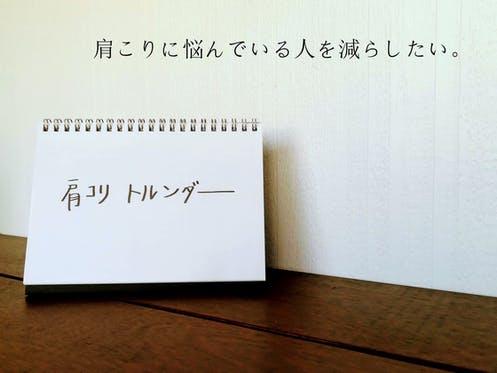 肩こりに悩んでいる人を減らしたい。
肩コリ トルンダ──